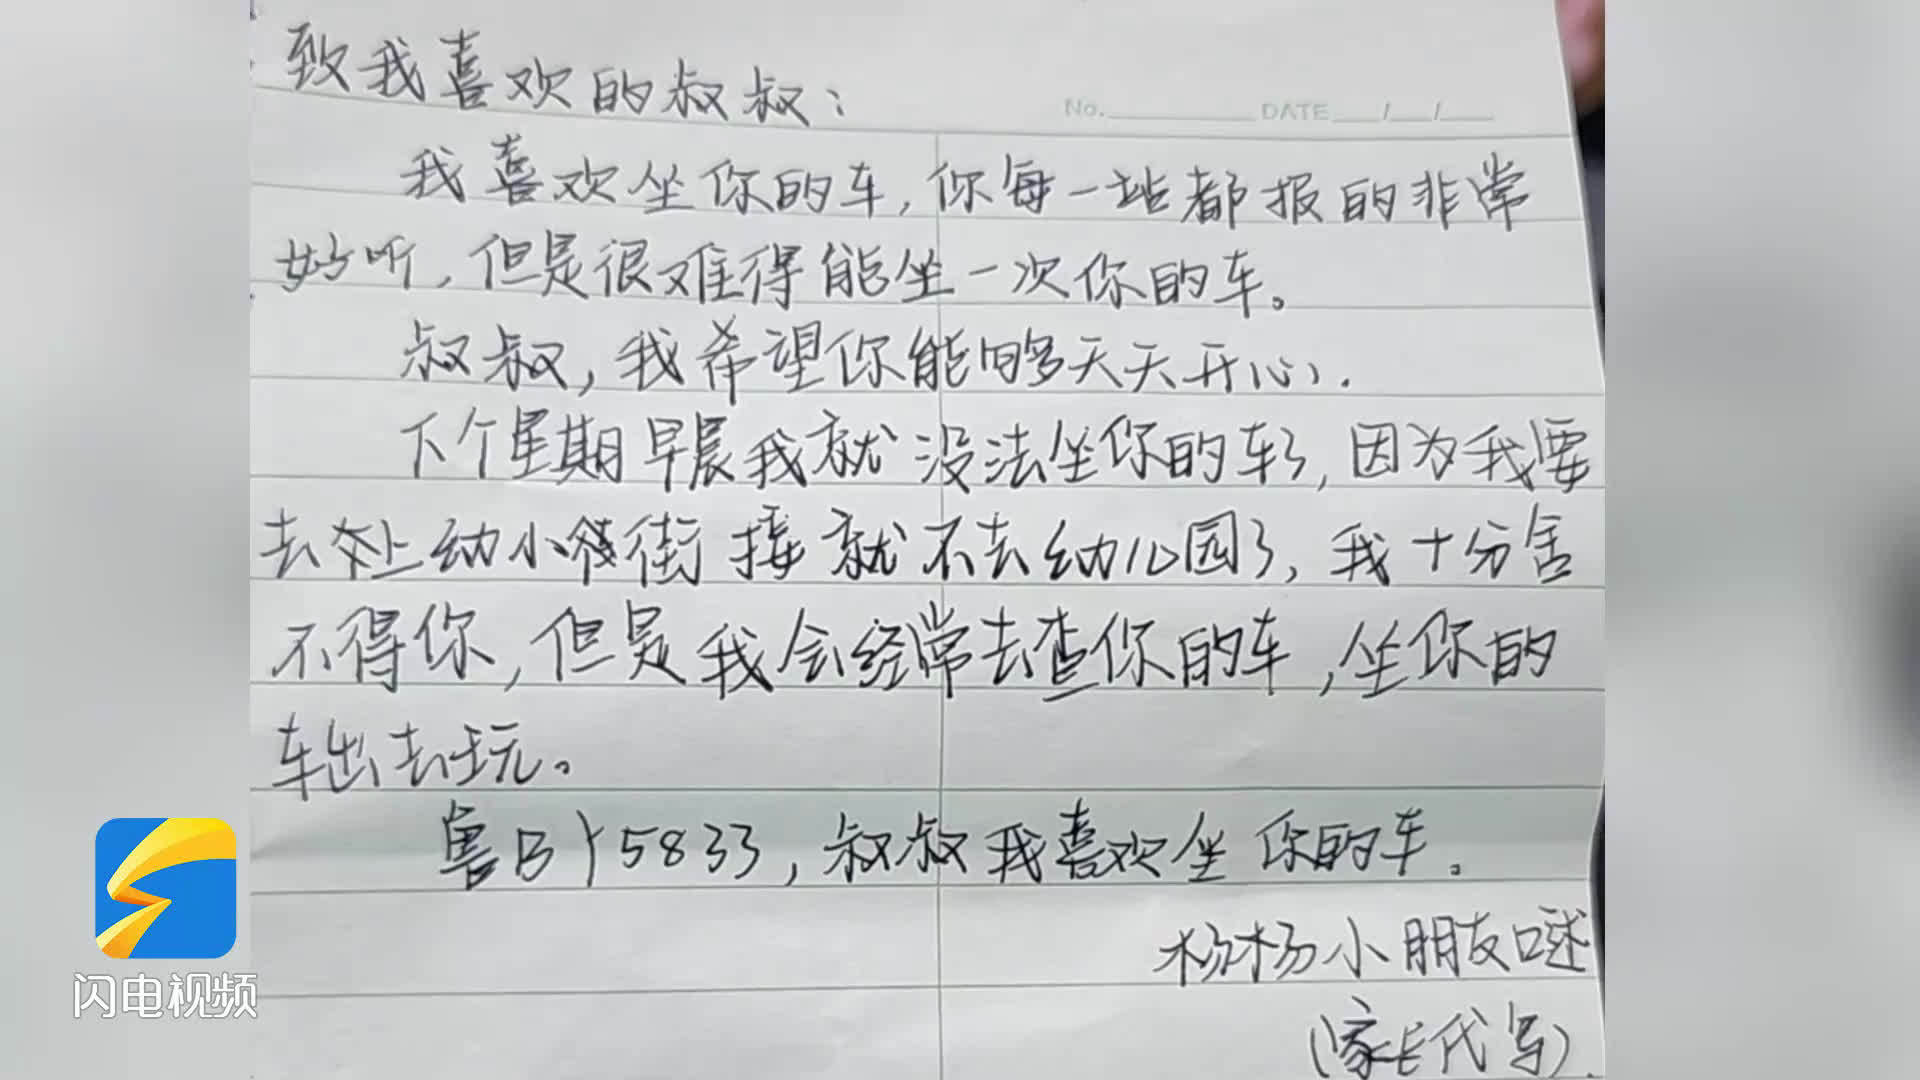 致我喜欢的叔叔：
No. DATE / /
我喜欢坐你的车，你每一站都报的非常
好听，但是很难得能坐一次你的车。
叔叔，我希望你能够天天开心.
下个星期早晨我就没法坐你的车了，因为我要
去上幼小衔接就不去幼儿园了，我十分舍
不得你，但是我会经常去查你的车，坐你的
车出去玩。
鲁B 5833，叔叔我喜欢坐你的车。
杨杨小朋友
(家长代写).
闪电视频